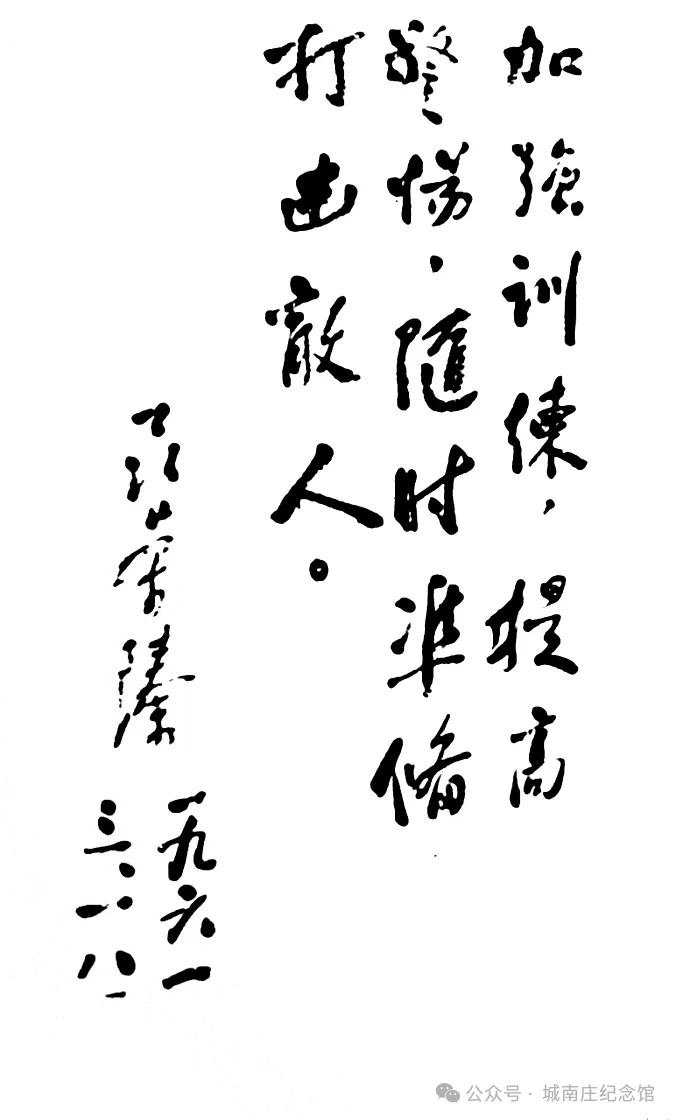 加强训练，提高
警惕，随时准备
打击敌人。
聂荣臻
一九六一
三、一八、
公众号 · 城南庄纪念馆